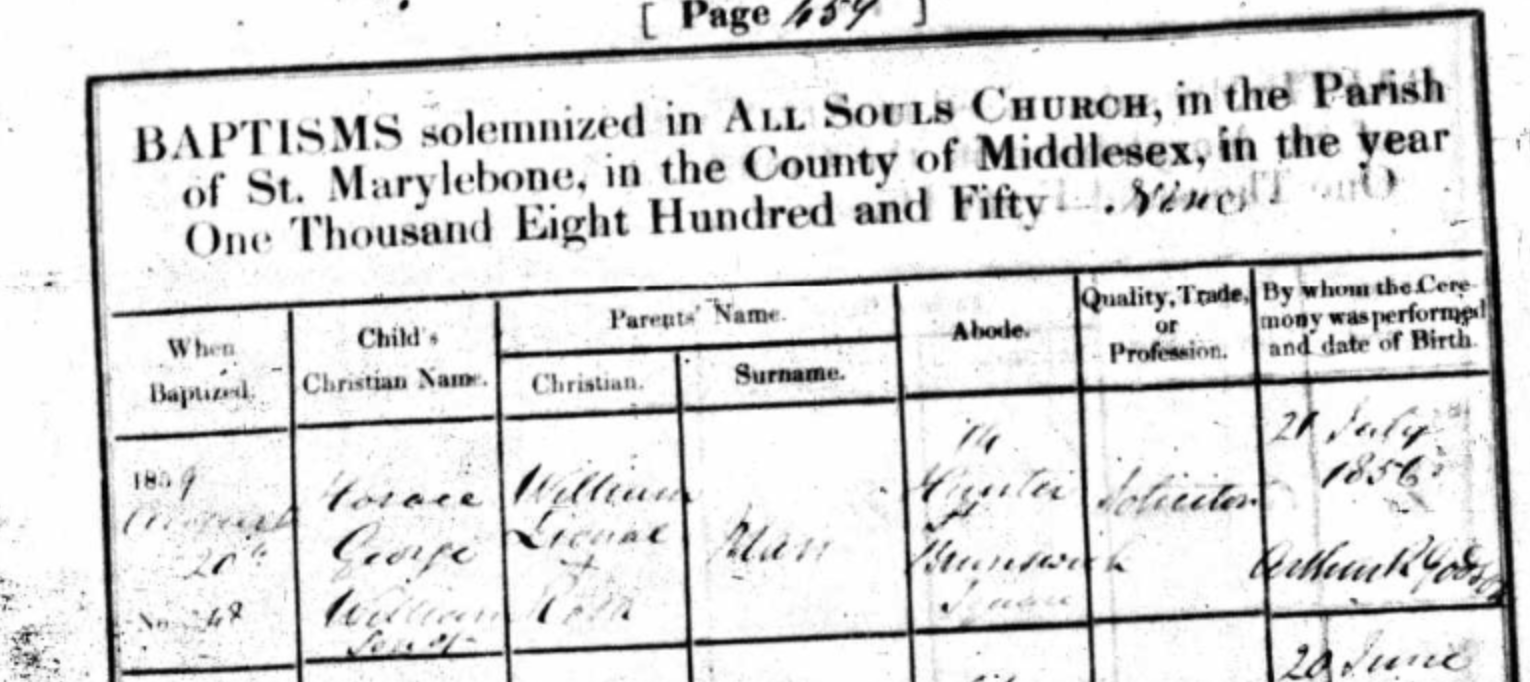 [ Page 459 ]
BAPTISMS solemnized in ALL SOULS CHURCH, in the Parish
of St. Marylebone, in the County of Middlesex, in the year
One Thousand Eight Hundred and Fifty Nine
When
Baptized.
Child's
Christian Name.
Parents' Name.
Christian.
Surname.
Abode.
Quality, Trade,
or
Profession.
By whom the Cere-
mony was performed
and date of Birth.
1859
August
20th
No. 48
Horace
George
William
Son of
William
Lional
&
Hunter
St
Brunswick
Square
Solicitor
21 July
1856
Arthur R Godson
20 June